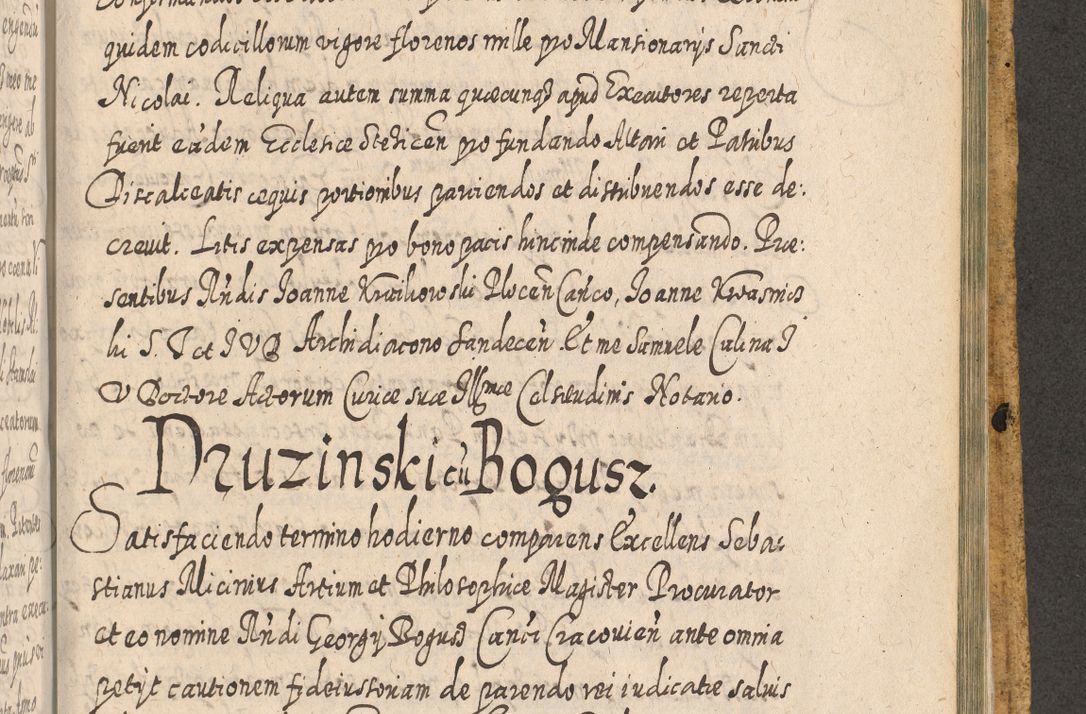 quidem codicillorum vigore florenos mille pro Mansionarijs Sancti
Nicolai. Reliqua autem summa quæcunqȝ apud Executores reperta
fuerit eádem Ecclesiæ Stehicen̄ pro fundando Altari et Patribus
Discalceatis æquis portionibus partiendos et distribuendos esse de:
crevit. Litis expensas pro bono pacis hincinde compensando. Præ:
sentibus Rn̄dis Joanne Kreihowski Plocen̄ Canco, Joanne Kwasnic
ki S. T et J V D Archidiacono Sandecen̄ Et me Samuele Culina J
V Doctore Actorum Curiæ suæ Illsmæ Celsitudinis Notario.
Druzinski cū Bogusz.
Satisfaciendo termino hodierno comparens Excellens Seba:
stianus Micinius Artium et Philosophiæ Magister Procurator
et eo nomine Rn̄di Georgij Bogusȝ Canci Cracovien̄ ante omnia
petijt cautionem fideiussoriam de parendo rei iudicatæ salvis